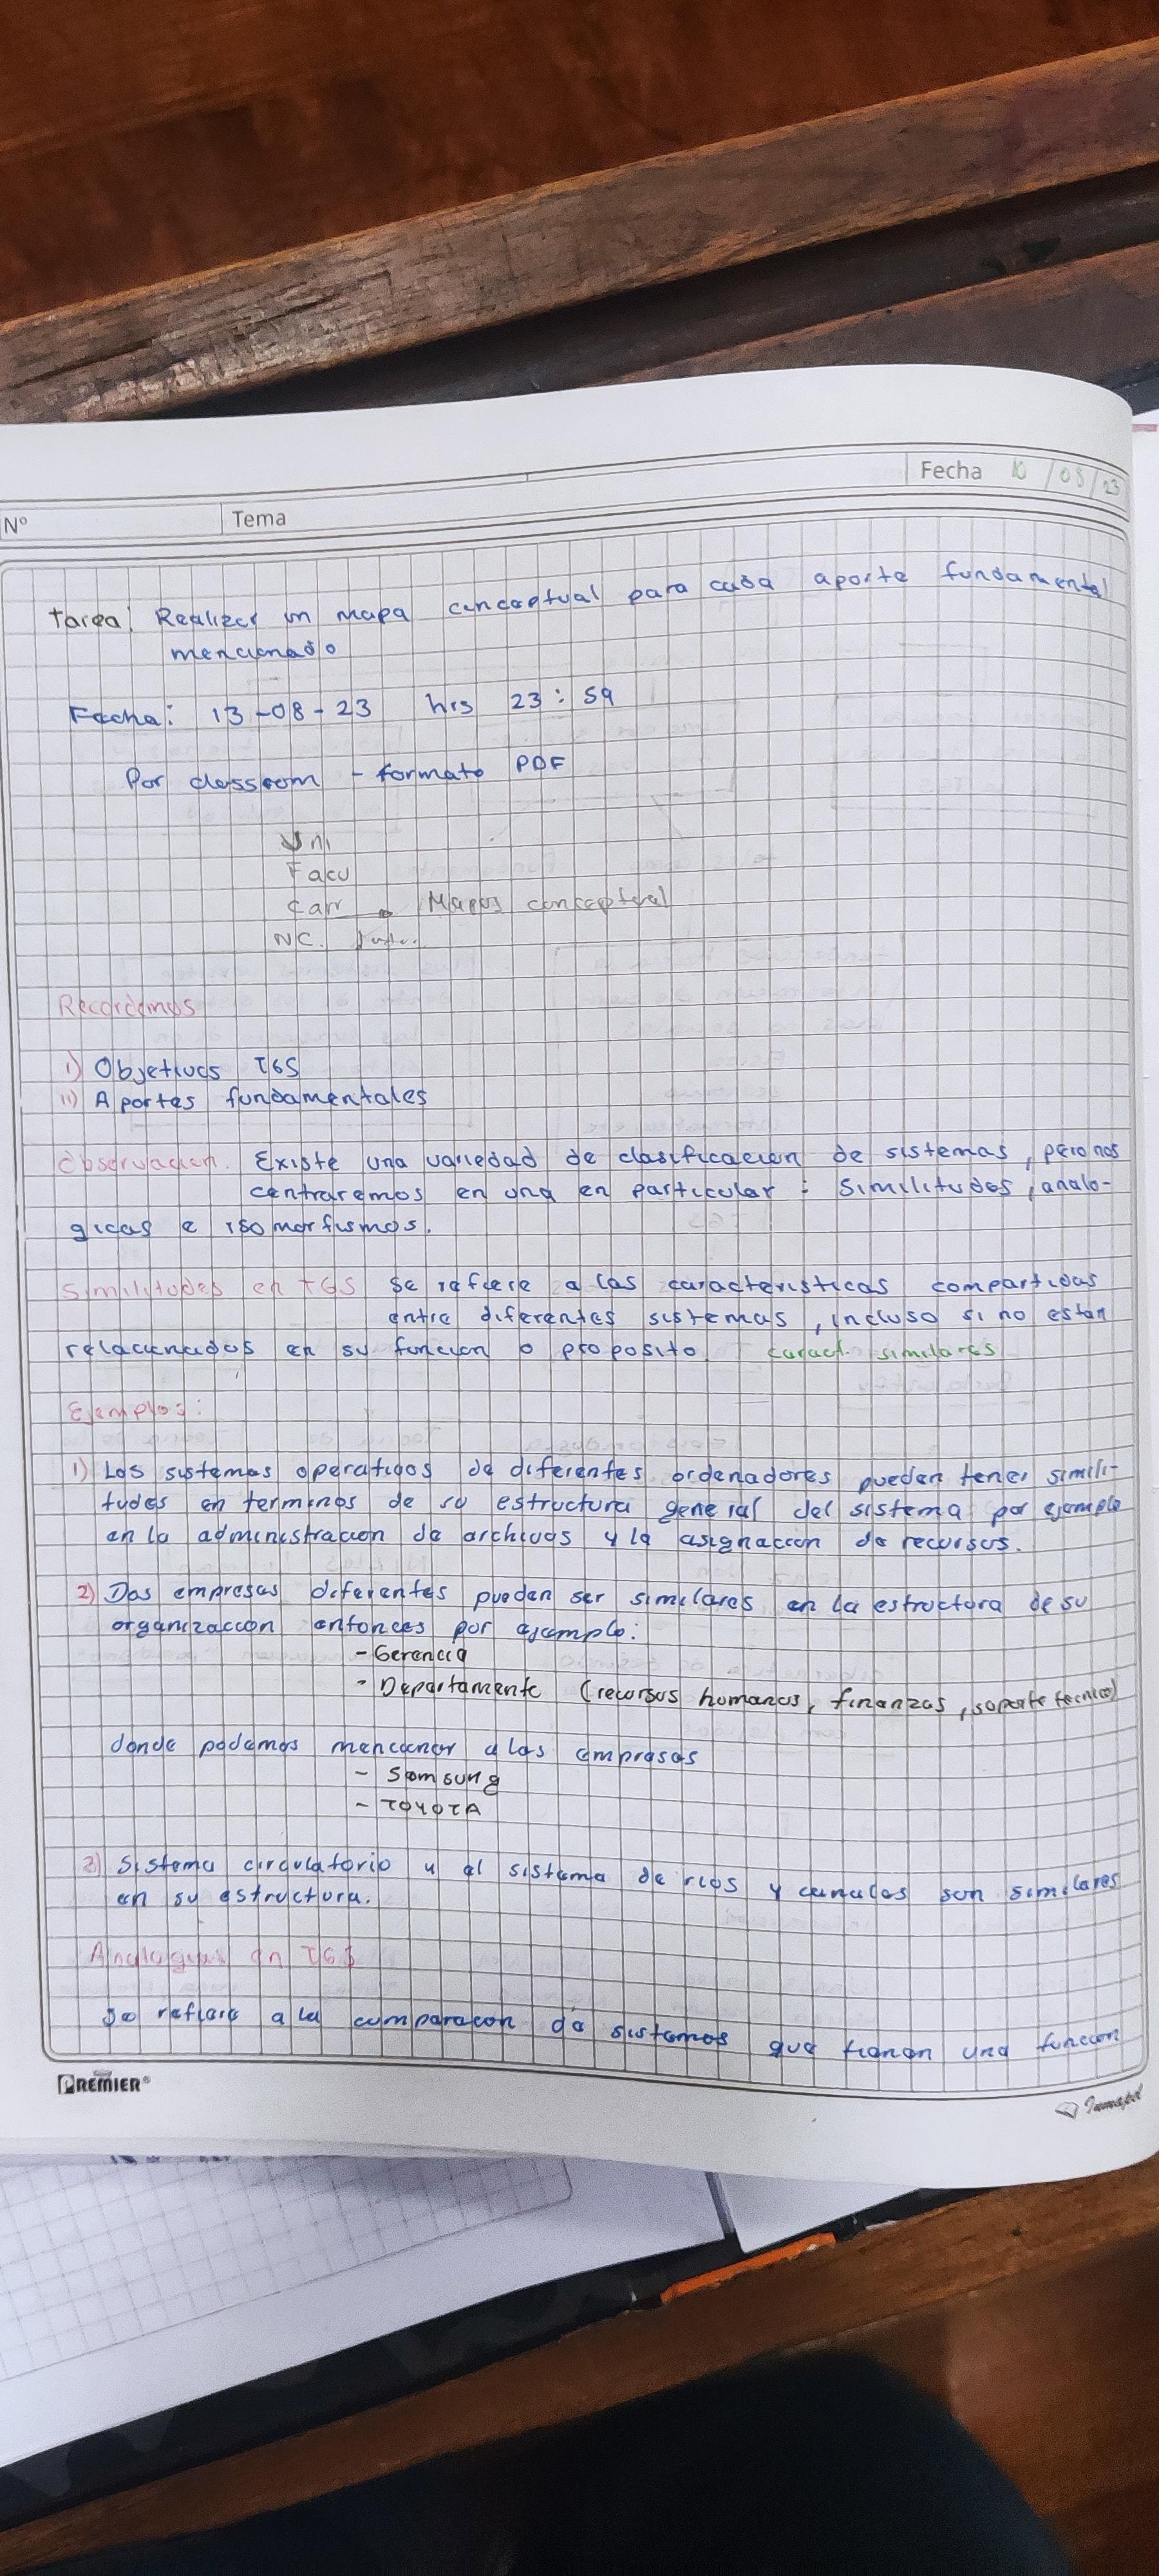 Fecha 10 / 08 / 23
Nº Tema
Tarea: Realizar un mapa conceptual para cada aporte fundamental
mencionado
Fecha: 13-08-23 hrs 23:59
Por classroom - formato PDF
Uni
Facu
Carr Mapas conceptual
NC.
Recordemos
i) Objetivos TGS
ii) Aportes fundamentales
Observacion. Existe una variedad de clasificacion de sistemas, pero nos
centraremos en una en particular : Similitudes, analo-
gicas e isomorfismos.
Similitudes en TGS Se refiere a las caracteristicas compartidas
entre diferentes sistemas, incluso si no estan
relacionados en su funcion o proposito caract. similares
Ejemplos:
1) Los sistemas operativos de diferentes ordenadores pueden tener simili-
tudes en terminos de su estructura general del sistema por ejemplo
en la administracion de archivos y la asignaccion de recursos.
2) Dos empresas diferentes pueden ser similares en la estructura de su
organizaccion entonces por ejemplo:
- Gerencia
- Departamento (recursos humanos, finanzas, soporte tecnico)
donde podemos mencionar a las empresas
- Samsung
- TOYOTA
3) Sistema circulatorio y el sistema de rios y canales son similares
en su estructura.
Analogias en TGS
Se refiere a la comparacion de sistemas que tienen una funcion
PREMIER®
Inmapel